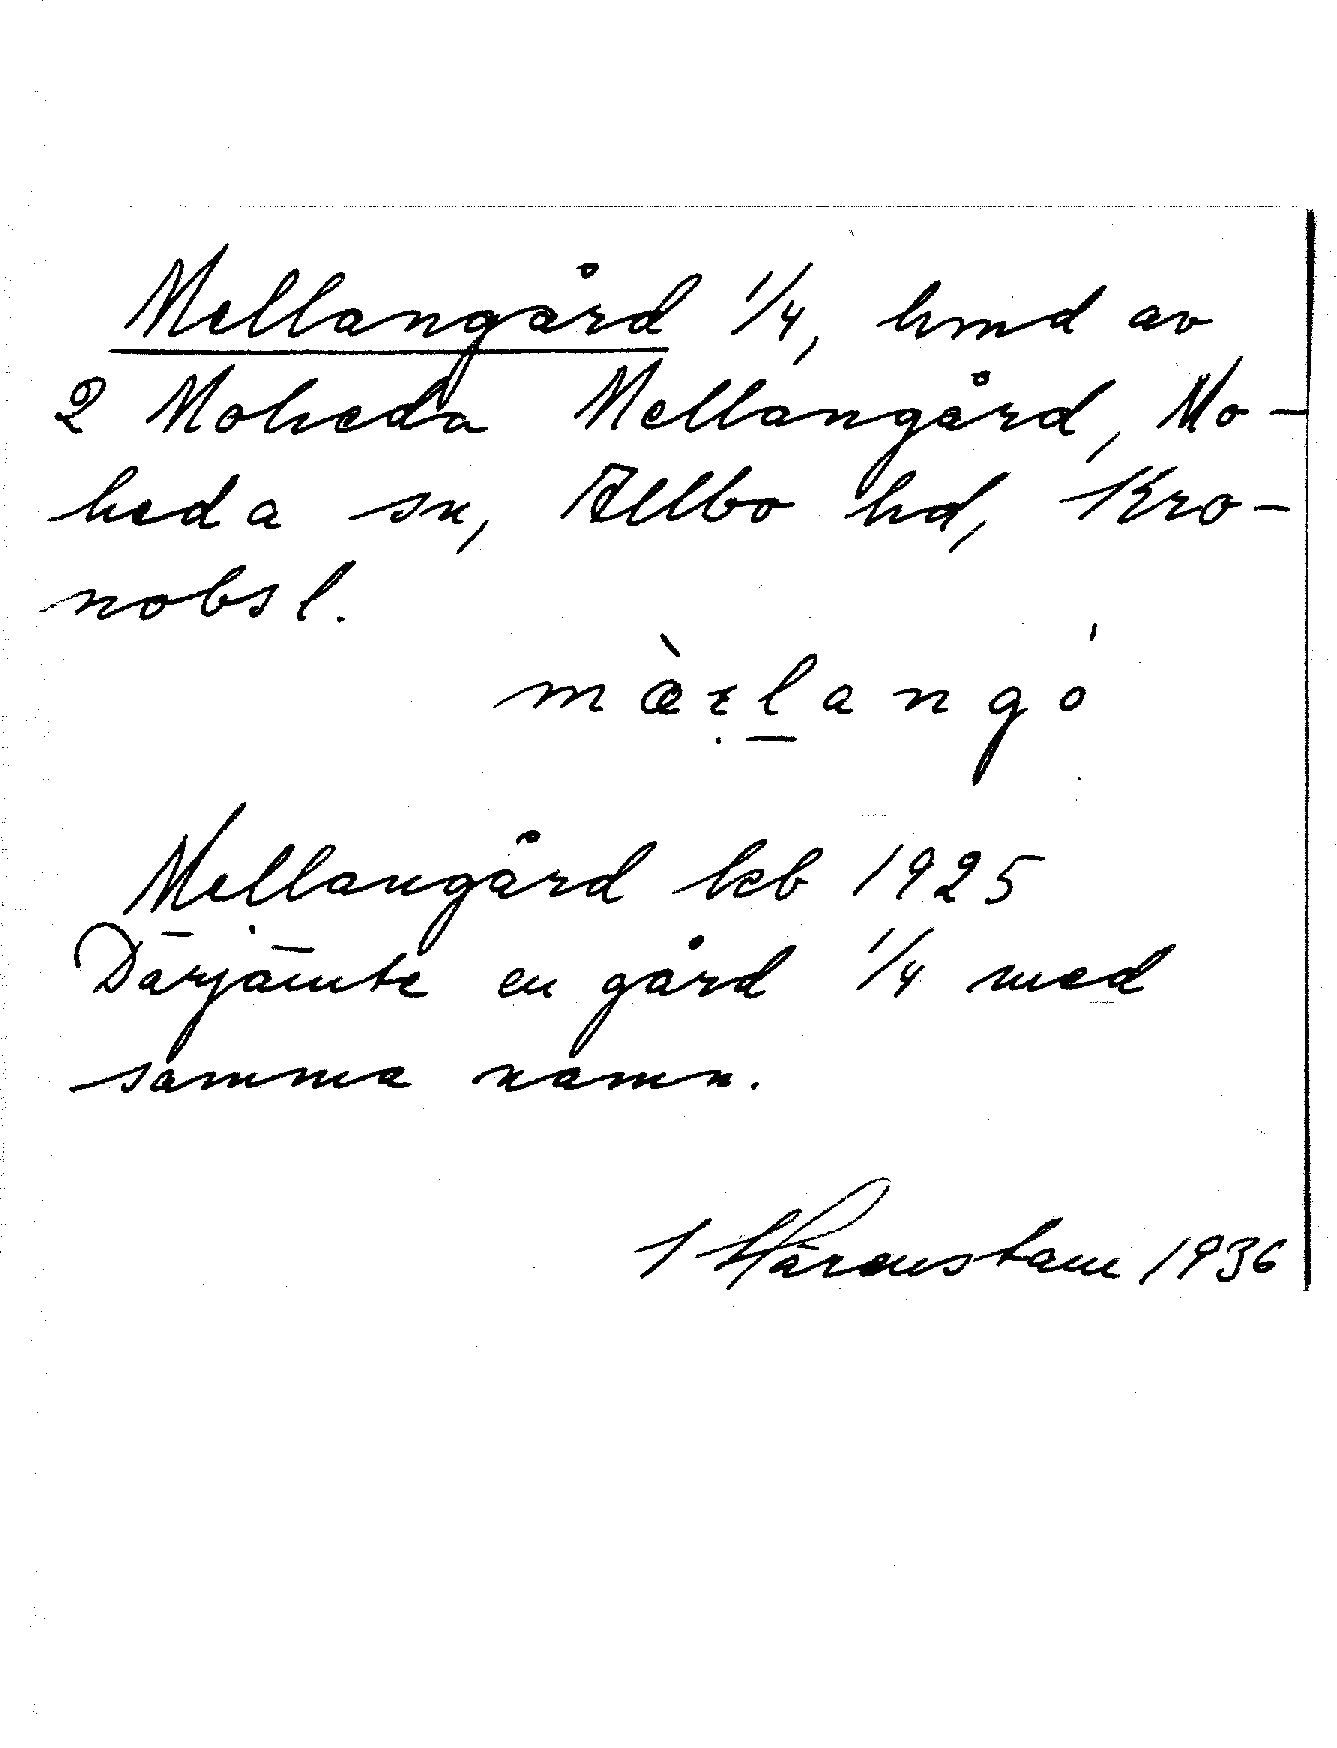 Mellangård 1/4, hmd av
2 Moheda Mellangård, Mo-
heda sn, Allbo hd, Kro-
nobs l.
mæ̀ẓḻangó
Mellangård kb 1925
Därjämte en gård 1/4 med
samma namn.
Härenstam 1936